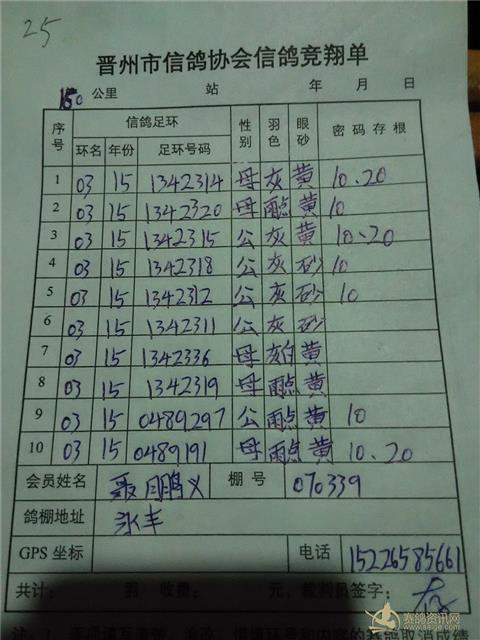 25
晋州市信鸽协会信鸽竞翔单
150公里 站 年 月 日
序号 信鸽足环 性别 羽色 眼砂 密码存根
环名 年份 足环号码
1 03 15 1342314 母 灰 黄 10.20
2 03 15 1342320 母 雨点 黄 10
3 03 15 1342315 公 灰 黄 10.20
4 03 15 1342318 公 灰 砂 10
5 03 15 1342312 公 灰 砂 10
6 03 15 1342311 公 灰 砂
7 03 15 1342336 母 灰白 黄
8 03 15 1342319 母 雨点 黄
9 03 15 0489297 公 雨点 黄 10
10 03 15 0489191 母 雨点 黄 10.20
会员姓名 聂鹏义 棚号 070339
鸽棚地址 永丰
GPS坐标 电话 15226585661
共计: 羽 收费: 元,裁判员签字:
赛鸽资讯网
www.saige.com